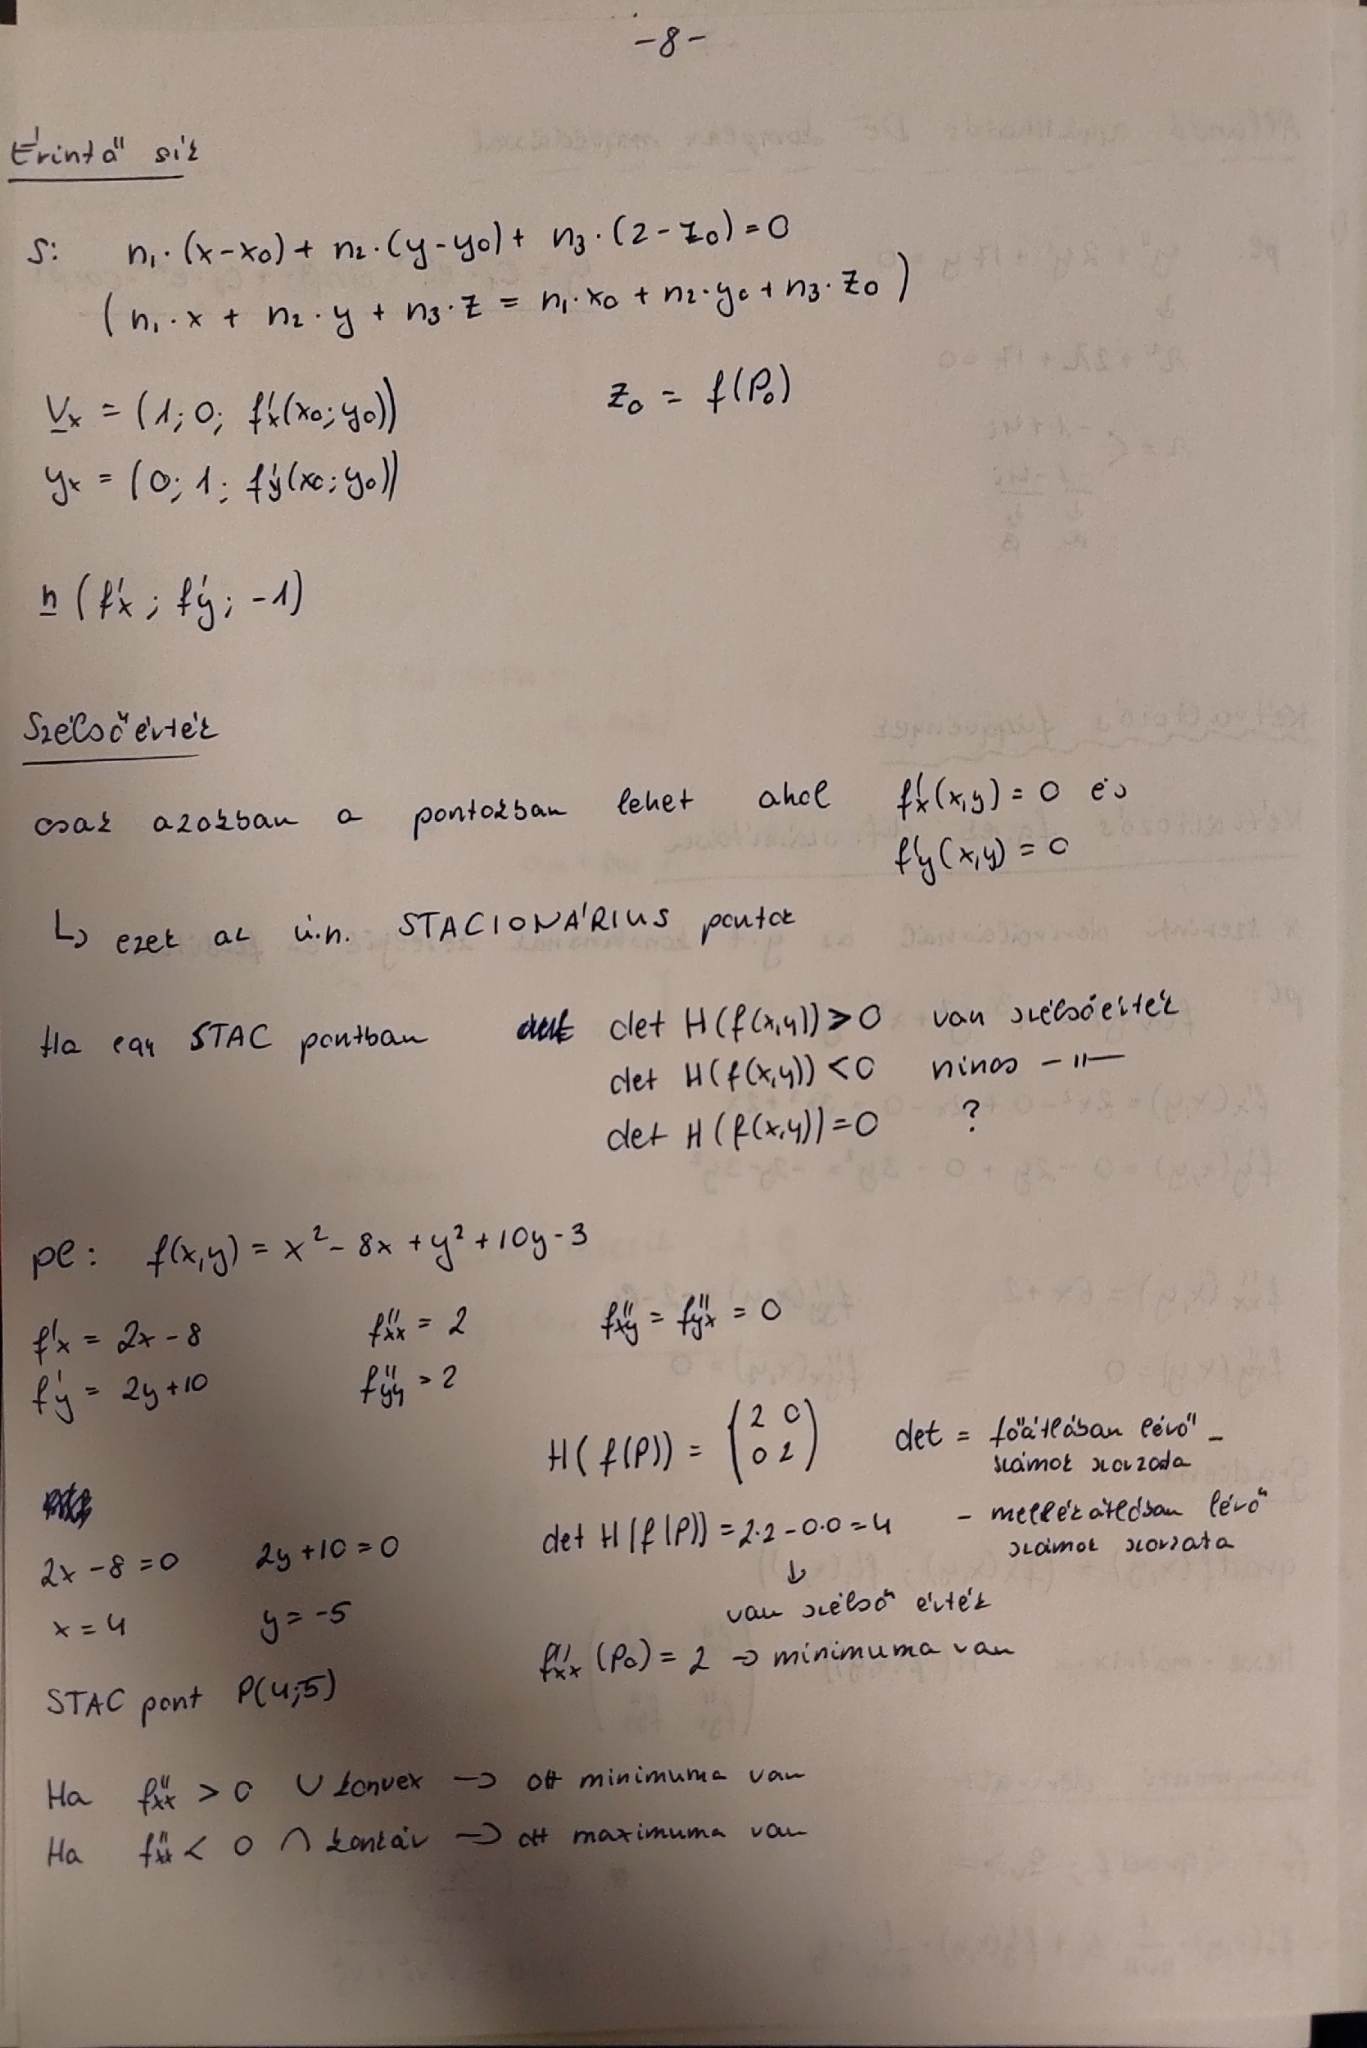 -8-
Érintő sík
S: n₁·(x-x₀) + n₂·(y-y₀) + n₃·(z-z₀) = 0
(n₁·x + n₂·y + n₃·z = n₁·x₀ + n₂·y₀ + n₃·z₀)
v̲x = (1; 0; f'x(x₀; y₀)) z₀ = f(P₀)
yx = (0; 1; f'y(x₀; y₀))
n̲ (f'x; f'y; -1)
Szélsőérték
csak azokban a pontokban lehet ahol f'x(x,y) = 0 és
f'y(x,y) = 0
↳ ezek az ú.n. STACIONÁRIUS pontok
Ha egy STAC pontban det H(f(x,y)) > 0 van szélsőérték
det H(f(x,y)) < 0 nincs -"-
det H(f(x,y)) = 0 ?
pl: f(x,y) = x² - 8x + y² + 10y - 3
f'x = 2x - 8 f''xx = 2 f''xy = f''yx = 0
f'y = 2y + 10 f''yy = 2
H(f(P)) = (2 0
0 2) det = főátlóban lévő -
számok szorzata
det H(f(P)) = 2·2 - 0·0 = 4 - mellékátlóban lévő
számok szorzata
2x - 8 = 0 2y + 10 = 0
↓
van szélső érték
x = 4 y = -5
f''xx (P₀) = 2 → minimuma van
STAC pont P(4;-5)
Ha f''xx > 0 ∪ konvex → ott minimuma van
Ha f''xx < 0 ∩ konkáv → ott maximuma van